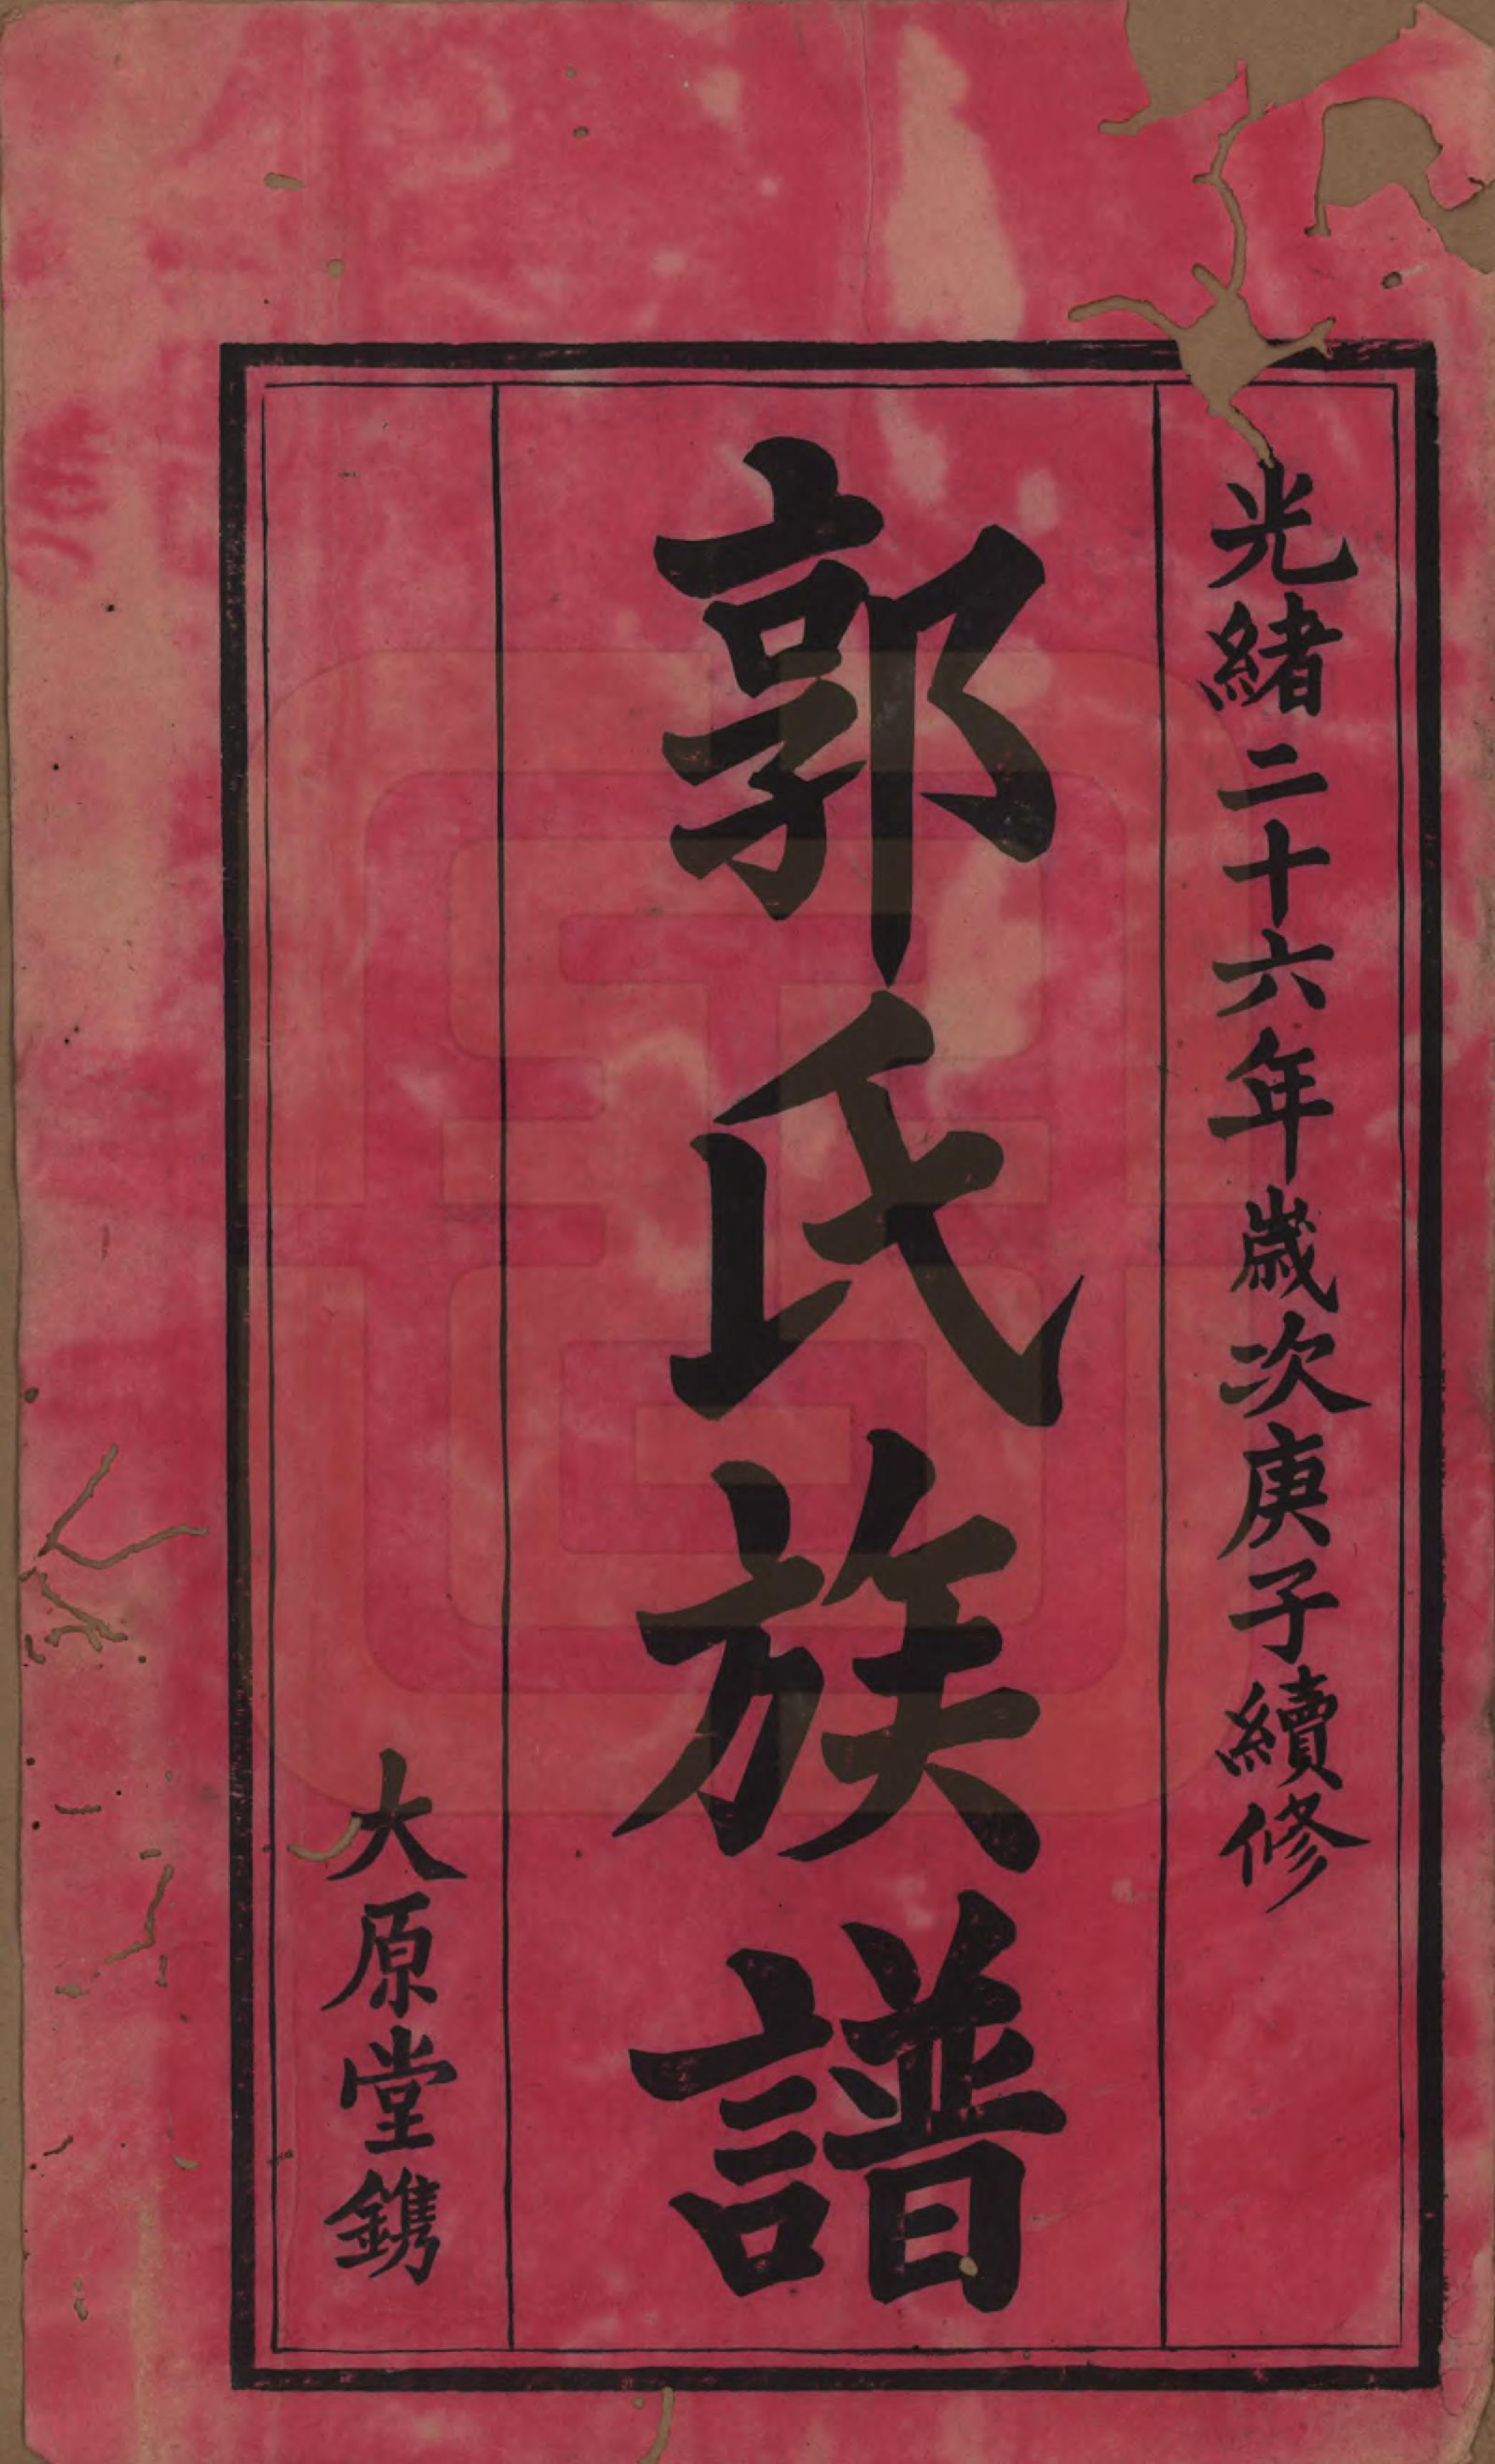 光緒二十六年歲次庚子續修
郭氏族譜
大原堂鐫